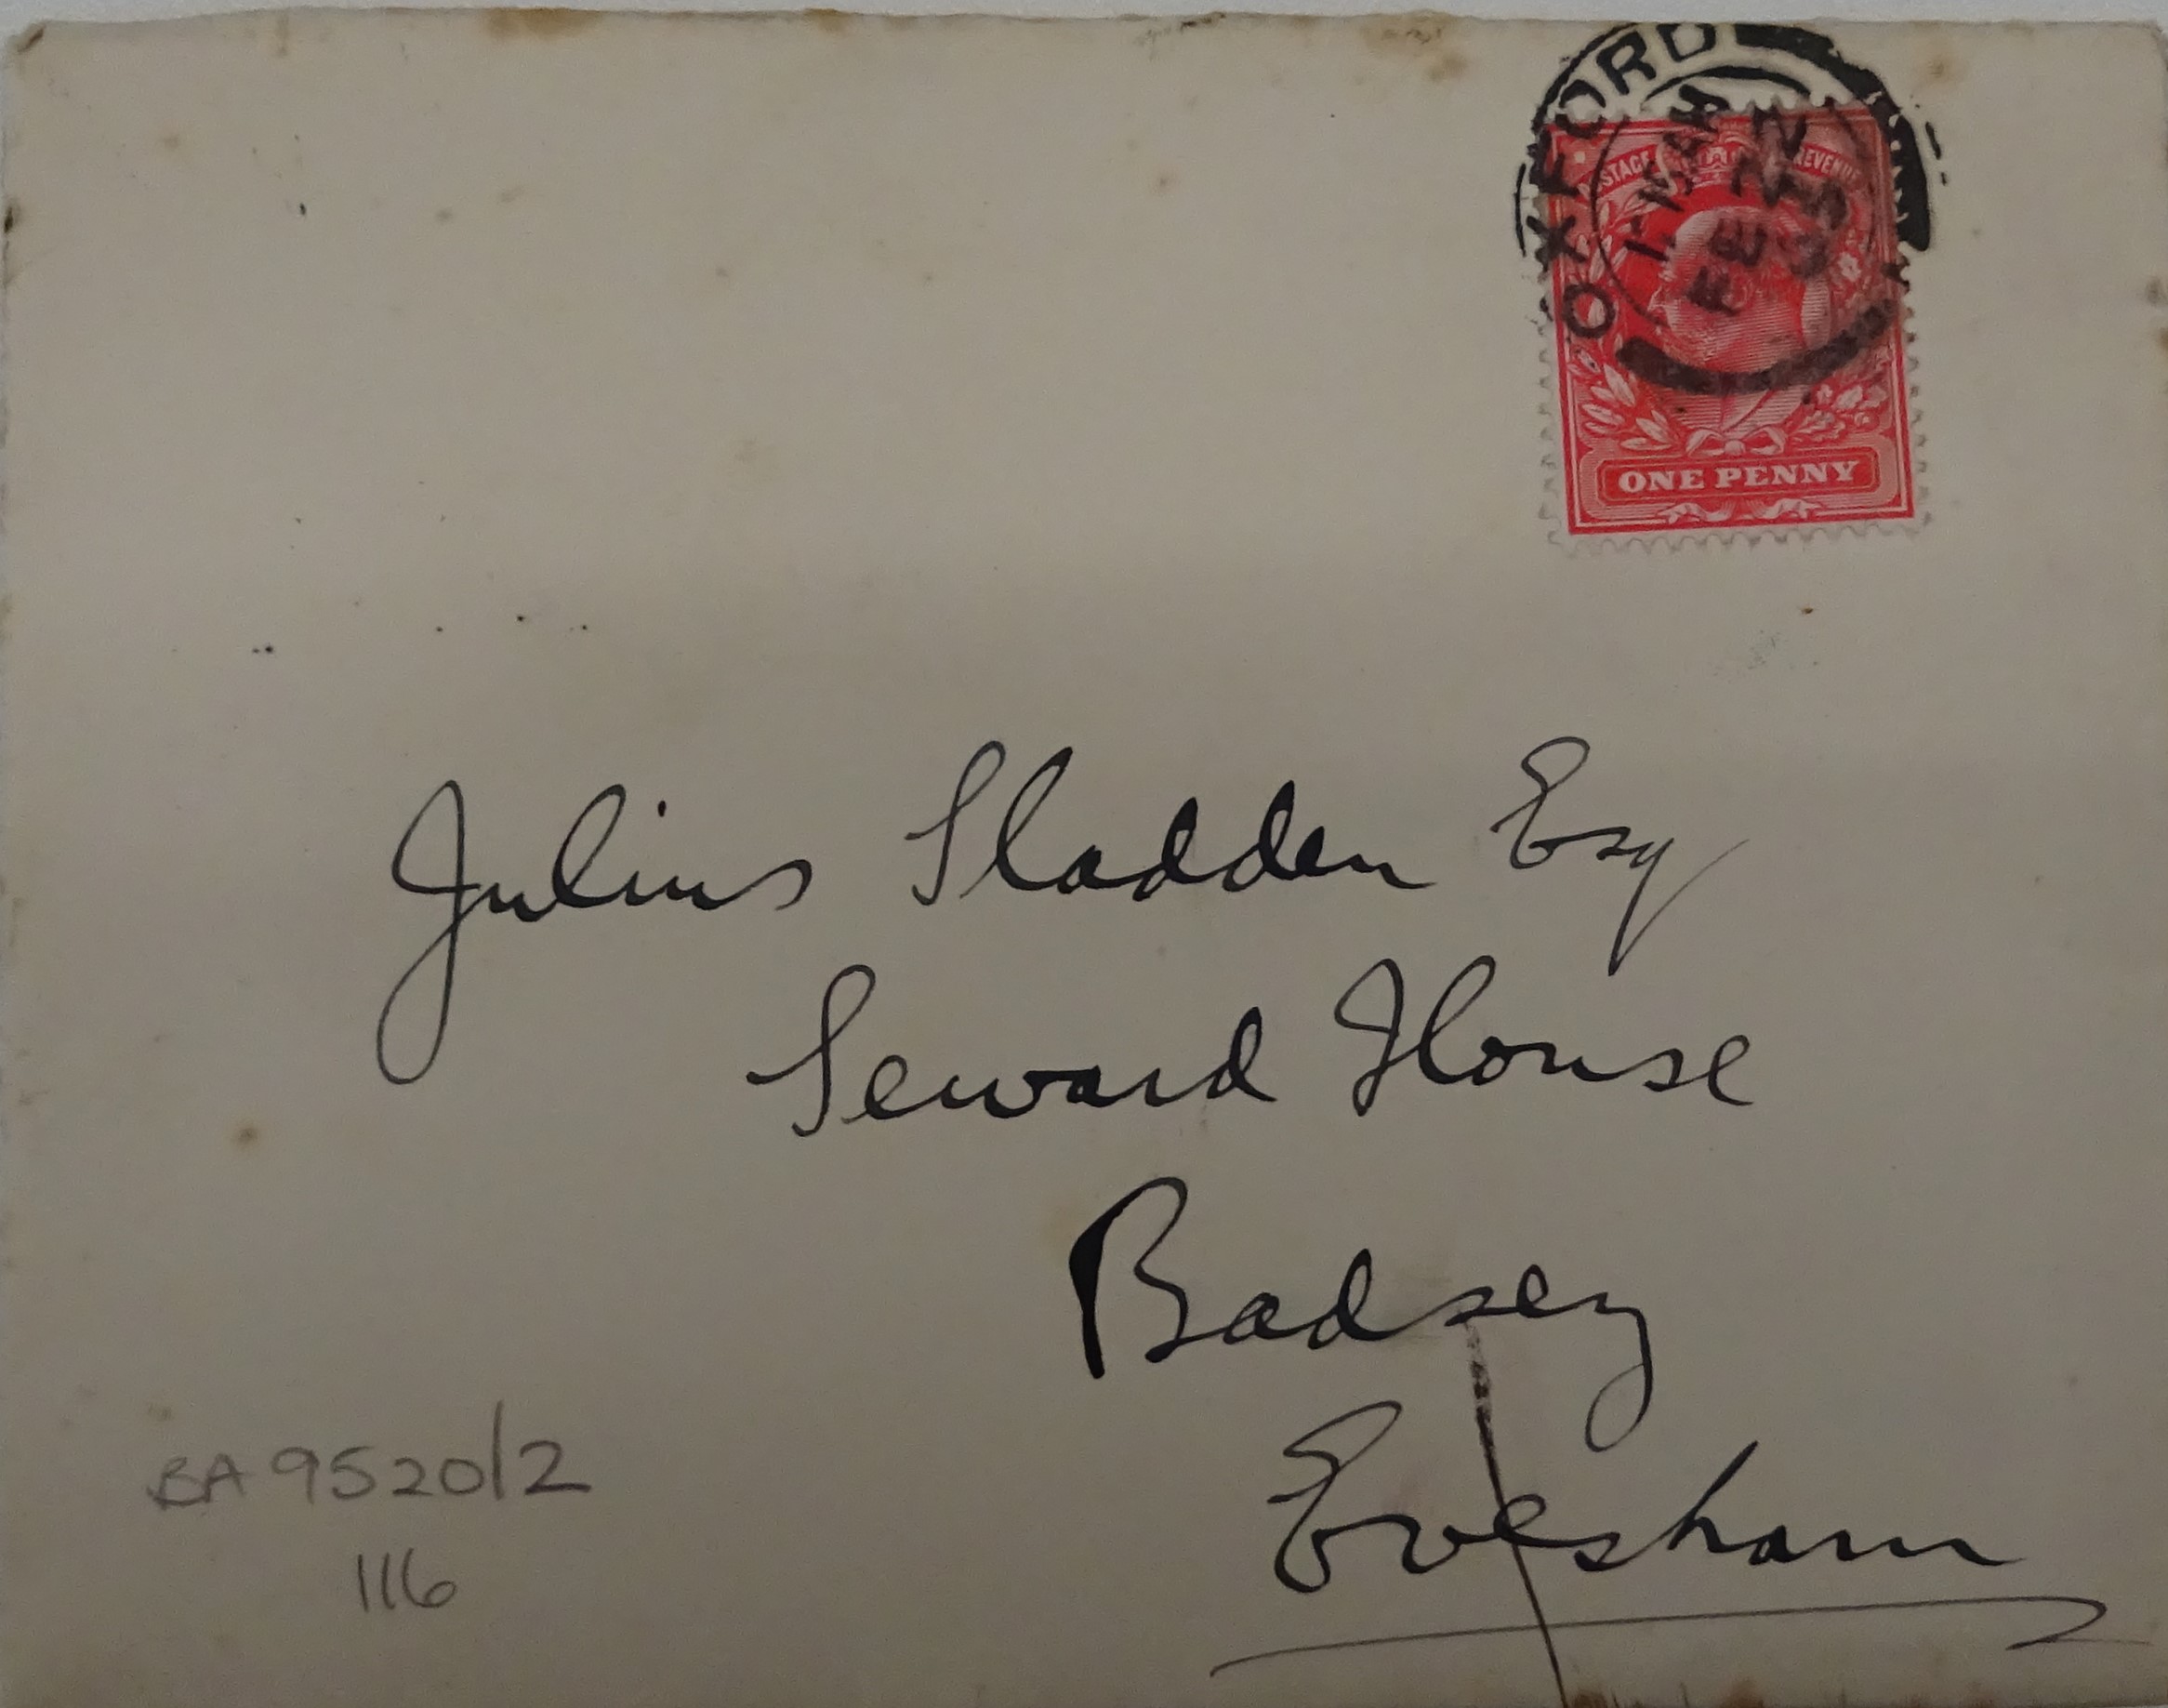 OXFORD
FE 22
POSTAGE REVENUE
ONE PENNY
Julius Sladden Esq
Seward House
Badsey
Evesham
BA 9520/2
116